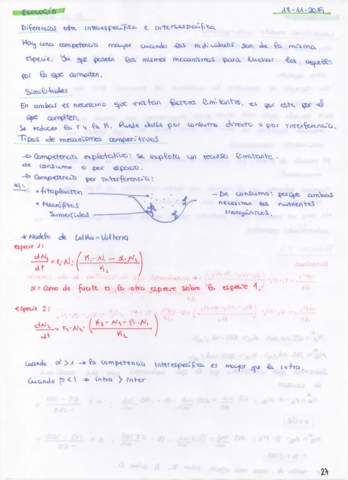 ECOLOGÍA
18-11-2019
Diferencias entre intraespecífica e interespecífica
Hay una competencia mayor cuando los individuos son de la misma
especie. Ya que poseen los mismos mecanismos para luchar por aquello
por lo que compiten.
Similitudes
En ambas es necesario que existan factores limitantes, es por esto por el
que compiten.
Se reduce la r y la K. Puede darse por consumo directo o por interferencia.
Tipos de mecanismos competitivos
→ Competencia explotativa: se explota un recurso limitante.
de consumo o por espacio.
→ Competencia por interferencia:
ej:
• Fitoplancton
• Macrófitos
Sumergidos
- De consumo: porque ambos
necesitan los nutrientes
inorgánicos.
→ Modelo de Lotka-Volterra
especie 1:
dN₁/dt = r₁·N₁ (K₁ - N₁ - α·N₂ / K₁)
α = Como de fuerte es la otra especie sobre la especie 1.
especie 2:
dN₂/dt = r₂·N₂ (K₂ - N₂ - β·N₁ / K₂)
Cuando α > 1 → la competencia interespecífica es mayor que la intra.
Cuando β < 1 → intra > inter
27